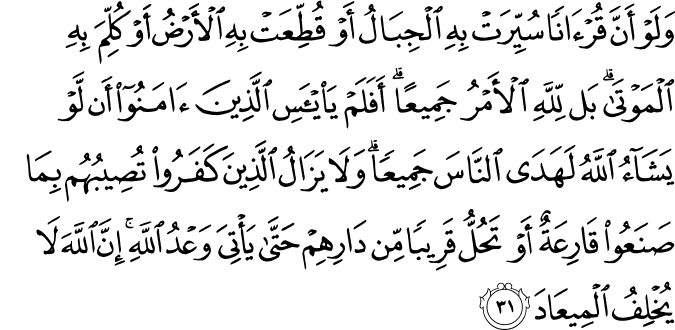 وَلَوْ أَنَّ قُرْءَانًا سُيِّرَتْ بِهِ ٱلْجِبَالُ أَوْ قُطِّعَتْ بِهِ ٱلْأَرْضُ أَوْ كُلِّمَ بِهِ
ٱلْمَوْتَىٰ ۗ بَل لِّلَّهِ ٱلْأَمْرُ جَمِيعًا ۗ أَفَلَمْ يَا۟يْـَٔسِ ٱلَّذِينَ ءَامَنُوٓا۟ أَن لَّوْ
يَشَآءُ ٱللَّهُ لَهَدَى ٱلنَّاسَ جَمِيعًا ۗ وَلَا يَزَالُ ٱلَّذِينَ كَفَرُوا۟ تُصِيبُهُم بِمَا
صَنَعُوا۟ قَارِعَةٌ أَوْ تَحُلُّ قَرِيبًا مِّن دَارِهِمْ حَتَّىٰ يَأْتِىَ وَعْدُ ٱللَّهِ ۚ إِنَّ ٱللَّهَ لَا
يُخْلِفُ ٱلْمِيعَادَ ٣١